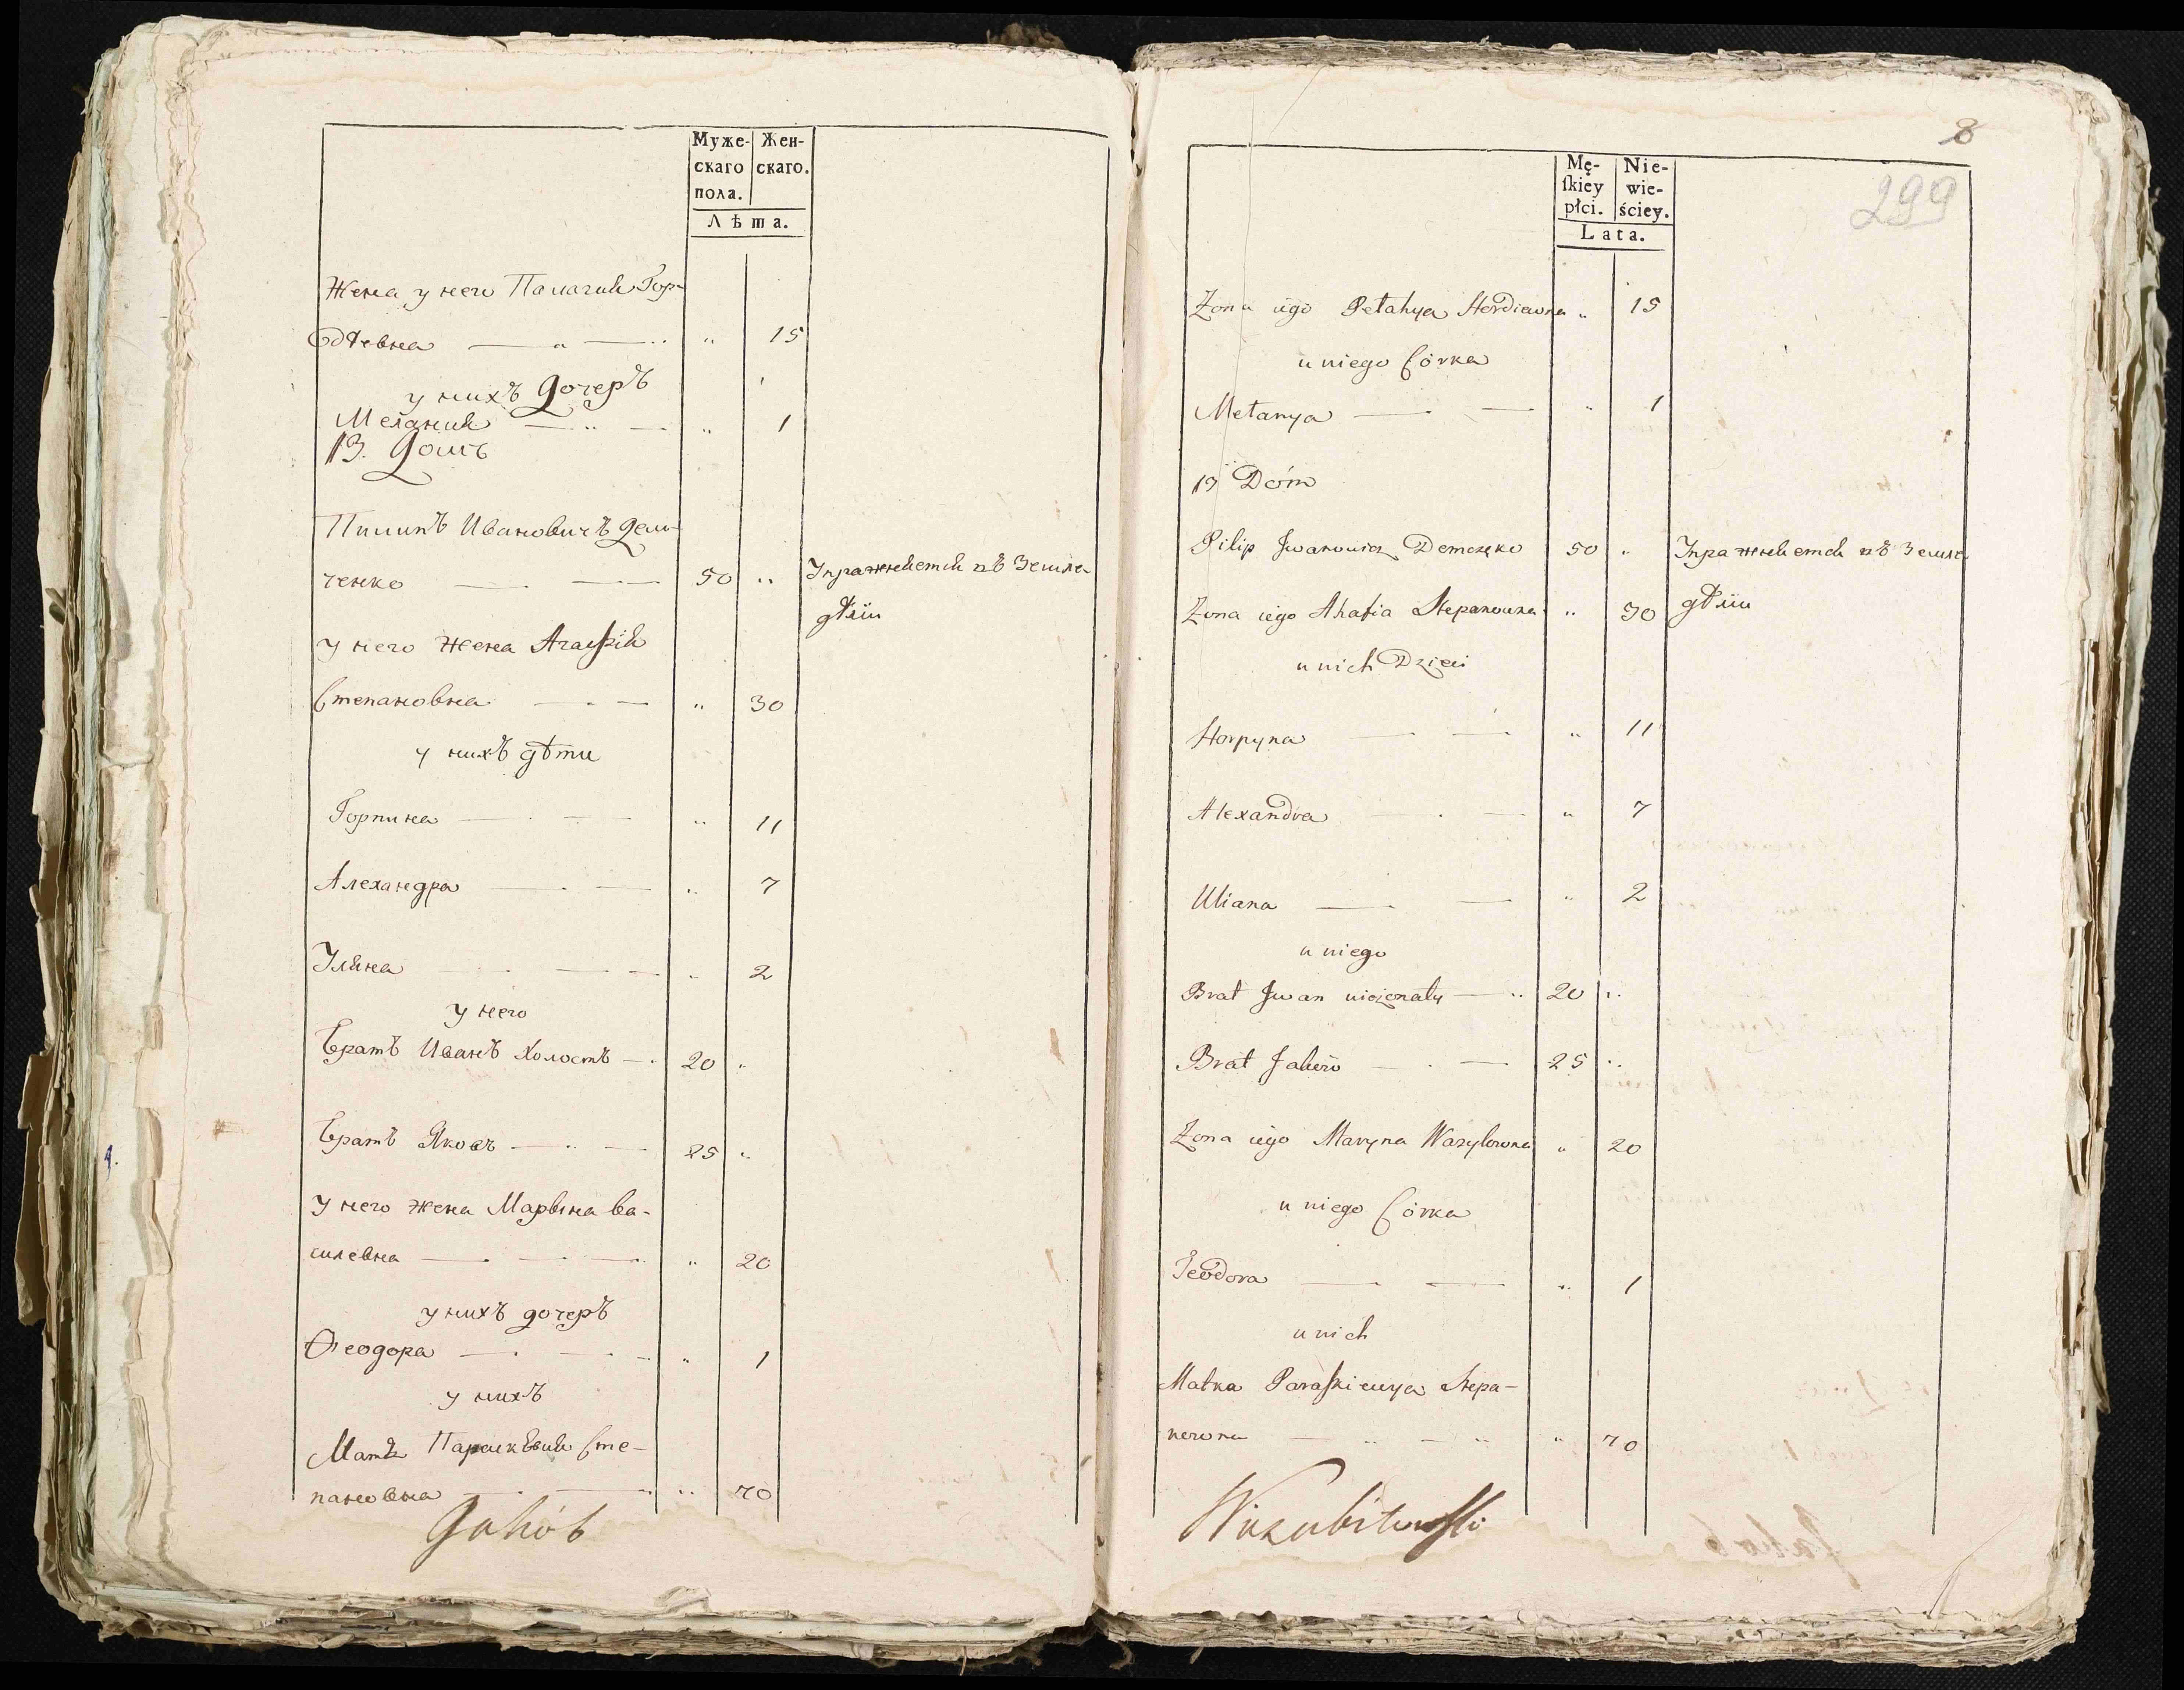 Муже- Жен-
скаго скаго.
пола.
Лѣта.
Жена у него Палагия Гор-
дѣевна — „ — „ 15
у нихъ Дочеръ
Мелания — „ — „ 1
13. Домъ
Пилипъ Ивановичъ Дем-
ченко — — 50 „ Упражняется въ Земле-
дѣлiи
у него Жена Агафiя
Степановна — — „ 30
у нихъ дѣти
Горпина — — „ 11
Алехандра — — „ 7
Уляна — — „ 2
у него
Братъ Иванъ Холостъ — 20 „
Братъ Яковъ — — 25 „
у него жена Марына Ва-
силевна — — „ 20
у нихъ дочеръ
Феодора — — „ 1
у нихъ
Матъ Параскѣвия Сте-
пановна — — „ 70
Jakób
8
299
Mę- Nie-
ſkiey wie-
płci. ściey.
Lata.
Żona iego Pełahya Hordiewna „ 15
u niego Córka
Mełanya — — „ 1
13 Dóm
Pilip Jwanowicz Demczeko 50 „ Упражняется въ Земле
дѣлiи
Żona iego Ahafia Stepanowna „ 30
u nich Dzieci
Horpyna — — „ 11
Alexandra — — „ 7
Uliana — — „ 2
u niego
Brat Jwan nieżenaty — „ 20 „
Brat Jaków — — 25 „
Żona iego Maryna Wasylowna „ 20
u niego Córka
Teodora — — „ 1
u nich
Matka Paraſkiewya Stepa-
nowna — „ — „ „ 70